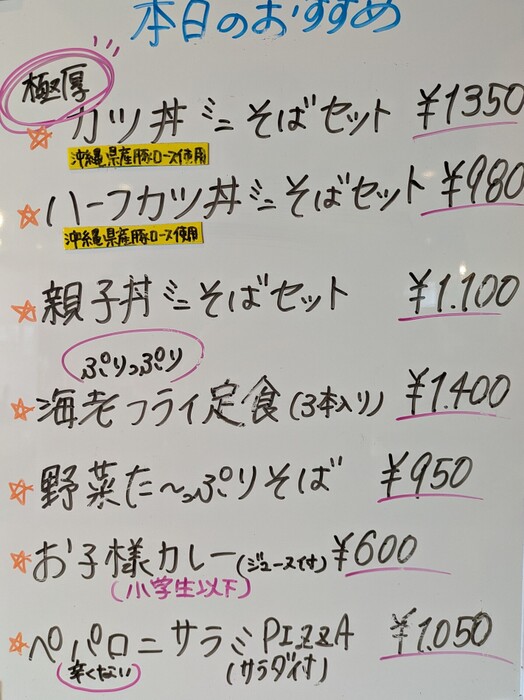 本日のおすすめ
極厚
カツ丼ミニそばセット ¥1350
沖縄県産豚ロース使用
ハーフカツ丼ミニそばセット ¥980
沖縄県産豚ロース使用
親子丼ミニそばセット ¥1.100
ぷりっぷり
海老フライ定食(3本入り) ¥1.400
野菜た〜っぷりそば ¥950
お子様カレー(ジュース付) ¥600
(小学生以下)
ペパロニサラミPIZZA ¥1.050
(辛くない) (サラダ付)